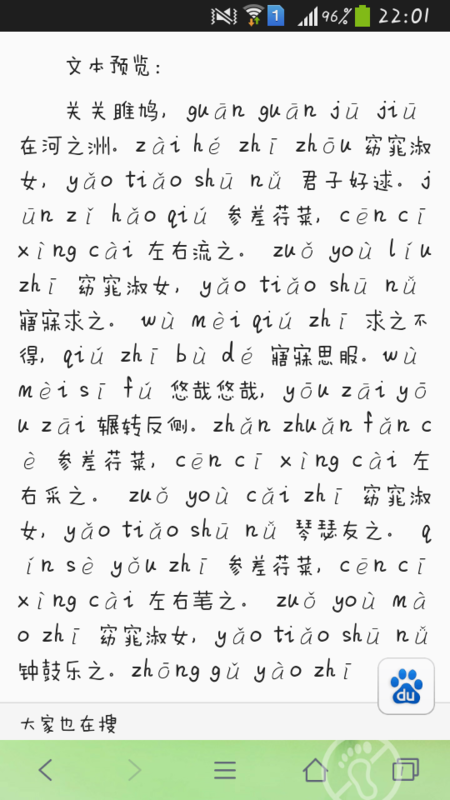 1 96% 22:01
文本预览:
关关雎鸠, guān guān jū jiū
在河之洲。zài hé zhī zhōu 窈窕淑
女, yǎo tiǎo shū nǚ 君子好逑。j
ūn zǐ hǎo qiú 参差荇菜, cēn cī
xìng cài 左右流之。 zuǒ yoù líu
zhī 窈窕淑女, yǎo tiǎo shū nǚ
寤寐求之。 wù mèi qiú zhī 求之不
得, qiú zhī bù dé 寤寐思服。wù
mèi sī fú 悠哉悠哉, yōu zāi yō
u zāi 辗转反侧。zhǎn zhuǎn fǎn c
è 参差荇菜, cēn cī xìng cài 左
右采之。 zuǒ yoù cǎi zhī 窈窕淑
女, yǎo tiǎo shū nǚ 琴瑟友之。 q
ín sè yǒu zhī 参差荇菜, cēn cī
xìng cài 左右芼之。 zuǒ yoù mà
o zhī 窈窕淑女, yǎo tiǎo shū nǚ
钟鼓乐之。zhōng gǔ yào zhī
du
大家也在搜